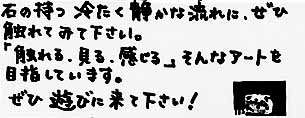 石の持つ 冷たく 静かな 流れに、ぜひ
触れてみて下さい。
「触れる.見る.感じる」そんなアートを
目指しています。
ぜひ 遊びに来て下さい!